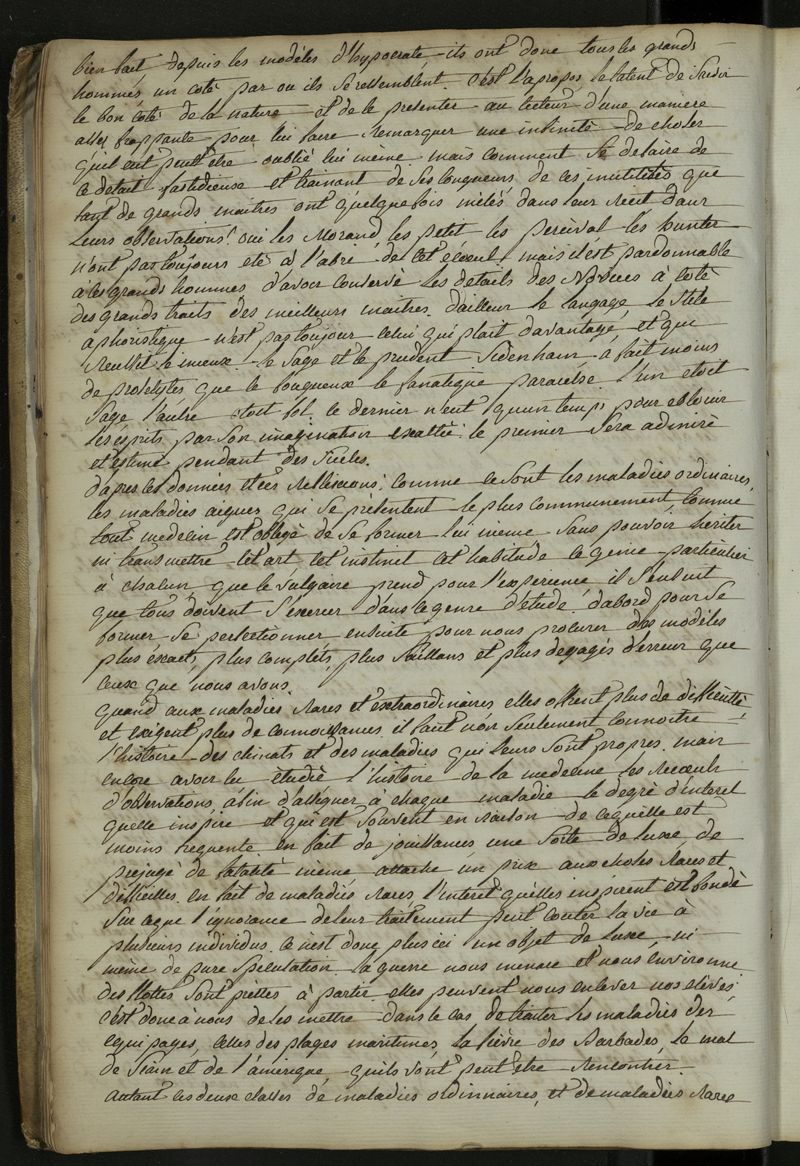 bien fait depuis les modèles d'hypocrate ils ont donc tous les grands
hommes un coté par ou ils se ressemblent. c'est l'apropos le talent de saisir
le bon coté de la nature et de le presenter au lecteur d'une maniere
assés frappante pour lui faire remarquer une infinité de choses
qu'il eut peut être oublié lui même. mais comment se defaire de
ce detail fastidieuse et trainant de ses longueurs de ces inutilités que
tant de grands maitres ont quelquefois mêlés dans leur recit dans
leurs observations? oui les Morand, les petit les percival les hunter
n'ont pas toujours eté à l'abri de cet écueil mais il est pardonnable
à ces grands hommes d'avoir conservé les details des novices à coté
des grands traits des meilleurs maitres. d'ailleur le langage, le stile
aphoristique n'est pas toujour celui qui plait davantage et qui
reussit le mieux. le sage et le prudent sidenham à fait moins
de proselytes que le fougueux le fanatique paracelse. l'un etoit
sage l'autre etoit fol. le dernier n'eut qu'un temps pour eblouir
les esprits par son imagination exaltée: le premier sera admiré
et estimé pendant des siecles.
d'apres ces données et ces reflexions, comme ce sont les maladies ordinaires,
les maladies aigues qui se présentent le plus communement comme
tout medecin est obligé de se former lui meme sans pouvoir heriter
ni transmettre cet art cet instinct cet habitude ce genie particulier
à chacun que le vulgaire prend pour l'experience il s'ensuit
que tous doivent s'exercer dans ce genre d'étude. d'abord pour se
former se perfectionner ensuite pour nous procurer des modèles
plus éxacts, plus complets, plus saillans et plus degagés d'erreur que
ceux que nous avons.
quand aux maladies rares et extraordinaires elles offrent plus de difficulté
et exigent plus de connoissances il faut non seulement connoitre
l'histoire des climats et des maladies qui leurs sont propres. mais
encore avoir lu étudié l'histoire de la medecine les recoeuls
d'observations, afin d'assigner à chaque maladie le degré d'interet
quelle inspire et qui est souvent en raison de ce qu'elle est
moins frequente. en fait de jouissances une sorte de luxe, de
prejugé de fatalité même attache un prix aux choses rares et
difficiles. en fait de maladies rares l'interet qu'elles inspirent est fondé
sur ce que l'ignorance de leur traitement peut couter la vie à
plusieurs individus. ce n'est donc plus ici un objet de luxe ni
même de pure speculation. la guerre nous menace et nous environne
des flottes sont prettes à partir. elles peuvent nous enlever nos elèves:
c'est donc à nous de les mettre dans le cas de traiter les maladies des
equipages, celles des plages maritimes, la fièvre des Barbades, le mal
de Siam et de l'amérique qu'ils vont peut être rencontrer.
autant ces deux classes de maladies ordinnaires, et de maladies rares